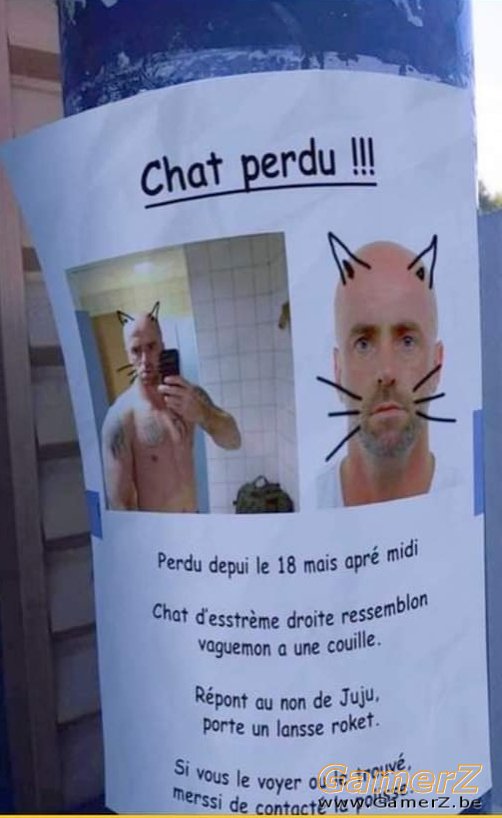 Chat perdu !!!
Perdu depui le 18 mais apré midi
Chat d'esstrème droite ressemblon
vaguemon a une couille.
Répont au non de Juju,
porte un lansse roket.
Si vous le voyer ou le trouvé,
merssi de contacté la polisse.
GamerZ
www.GamerZ.be